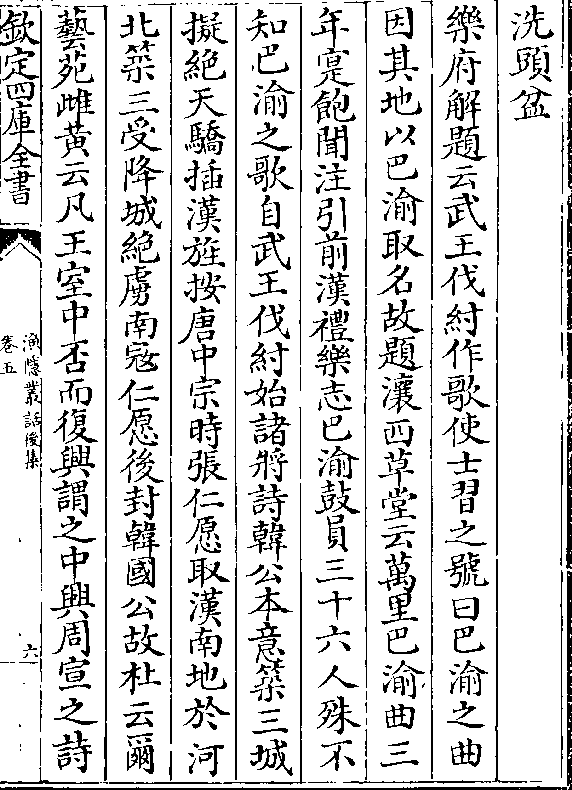 洗頭盆
樂府解題云武王伐紂作歌使士習之號曰巴渝之曲
因其地以巴渝取名故題瀼西草堂云萬里巴渝曲三
年寔飽聞注引前漢禮樂志巴渝鼓員三十六人殊不
知巴渝之歌自武王伐紂始諸將詩韓公本意築三城
擬絕天驕插漢旌按唐中宗時張仁愿取漢南地於河
北築三受降城絕虜南寇仁愿後封韓國公故杜云爾
藝苑雌黃云凡王室中否而復興謂之中興周宣之詩
欽定四庫全書
漁隱叢話後集
卷五
六